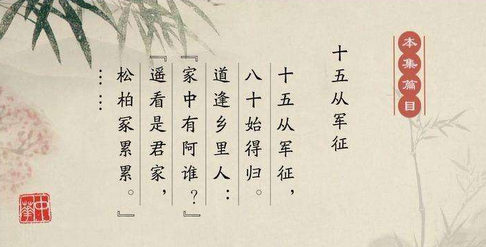 本集篇目
十五从军征
十五从军征，
八十始得归。
道逢乡里人：
『家中有阿谁？』
『遥看是君家，
松柏冢累累。』
……
中华